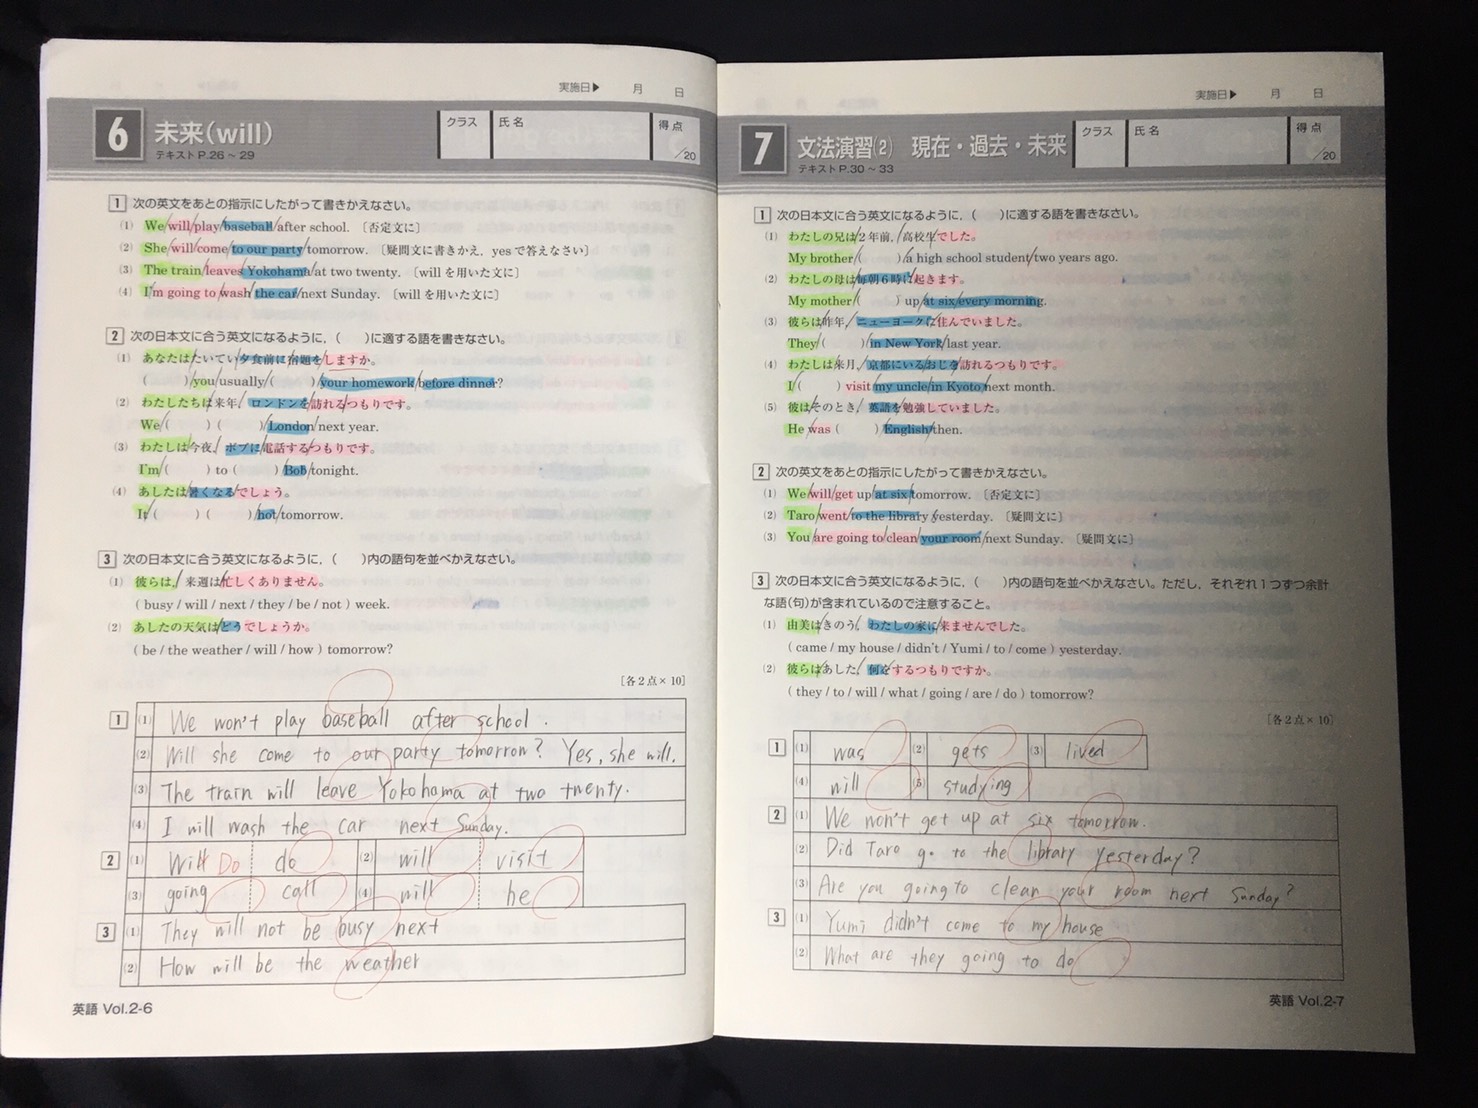 実施日▶ 月 日
6 未来(will)
テキストP.26～29
クラス 氏名 得点 /20
1 次の英文をあとの指示にしたがって書きかえなさい。
(1) We/will/play/baseball/after school. 〔否定文に〕
(2) She/will/come/to our party/tomorrow. 〔疑問文に書きかえ, yesで答えなさい〕
(3) The train/leaves/Yokohama/at two twenty. 〔willを用いた文に〕
(4) I'm going to/wash/the car/next Sunday. 〔willを用いた文に〕
2 次の日本文に合う英文になるように, ( )に適する語を書きなさい。
(1) あなたは/たいてい/夕食前に/宿題を/しますか。
( )/you/usually/( )/your homework/before dinner?
(2) わたしたちは/来年,/ロンドンを/訪れる/つもりです。
We/( ) ( )/London/next year.
(3) わたしは/今夜,/ボブに/電話する/つもりです。
I'm/( ) to ( )/Bob/tonight.
(4) あしたは/暑くなる/でしょう。
It/( ) ( )/hot/tomorrow.
3 次の日本文に合う英文になるように, ( )内の語句を並べかえなさい。
(1) 彼らは,/来週は/忙しくありません。
( busy / will / next / they / be / not ) week.
(2) あしたの天気は/どう/でしょうか。
( be / the weather / will / how ) tomorrow?
〔各2点×10〕
1 (1) We won't play baseball after school.
(2) Will she come to our party tomorrow? Yes, she will.
(3) The train will leave Yokohama at two twenty.
(4) I will wash the car next Sunday.
2 (1) Will Do do (2) will visit
(3) going call (4) will be
3 (1) They will not be busy next
(2) How will be the weather
英語 Vol.2-6
実施日▶ 月 日
7 文法演習(2) 現在・過去・未来
テキストP.30～33
クラス 氏名 得点 /20
1 次の日本文に合う英文になるように, ( )に適する語を書きなさい。
(1) わたしの兄は/2年前,/高校生/でした。
My brother/( )/a high school student/two years ago.
(2) わたしの母は/毎朝6時に/起きます。
My mother/( ) up/at six/every morning.
(3) 彼らは/昨年,/ニューヨークに/住んでいました。
They/( )/in New York/last year.
(4) わたしは/来月,/京都にいる/おじを/訪れるつもりです。
I/( ) visit/my uncle/in Kyoto/next month.
(5) 彼は/そのとき,/英語を/勉強していました。
He was ( )/English/then.
2 次の英文をあとの指示にしたがって書きかえなさい。
(1) We/will/get up/at six/tomorrow. 〔否定文に〕
(2) Taro/went/to the library/yesterday. 〔疑問文に〕
(3) You/are going to/clean/your room/next Sunday. 〔疑問文に〕
3 次の日本文に合う英文になるように, ( )内の語句を並べかえなさい。ただし, それぞれ1つずつ余計
な語(句)が含まれているので注意すること。
(1) 由美は/きのう,/わたしの家に/来ませんでした。
( came / my house / didn't / Yumi / to / come ) yesterday.
(2) 彼らは/あした,/何を/するつもりですか。
( they / to / will / what / going / are / do ) tomorrow?
〔各2点×10〕
1 (1) was (2) gets (3) lived
(4) will (5) studying
2 (1) We won't get up at six tomorrow.
(2) Did Taro go to the library yesterday?
(3) Are you going to clean your room next Sunday?
3 (1) Yumi didn't come to my house
(2) What are they going to do
英語 Vol.2-7